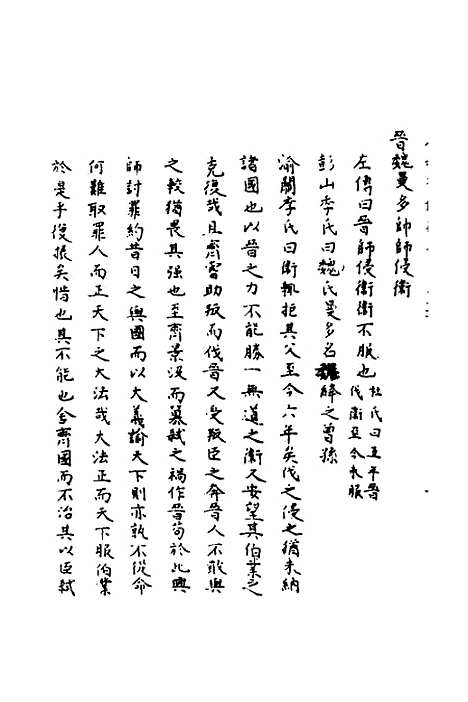 晉魏曼多帥師侵衛
左傳曰晉師侵衛衛不服也杜氏曰五年晉
伐衛至今未服
彭山季氏曰魏氏曼多名絳之曾孫
渝關李氏曰衛輒拒其父至今六年矣伐之侵之猶未納
諸國也以晉之力不能勝一無道之衛又安望其伯業之
克復哉且齊嘗助叛而伐晉又受叛臣之奔晉人不敢與
之較猶畏其强也至齊景沒而篡弒之禍作晉苟於此興
師討罪約昔日之與國而以大義諭天下則亦孰不從命
何難取罪人而正天下之大法哉大法正而天下服伯業
於是乎復振矣惜也其不能也舍齊國而不治其以臣弒